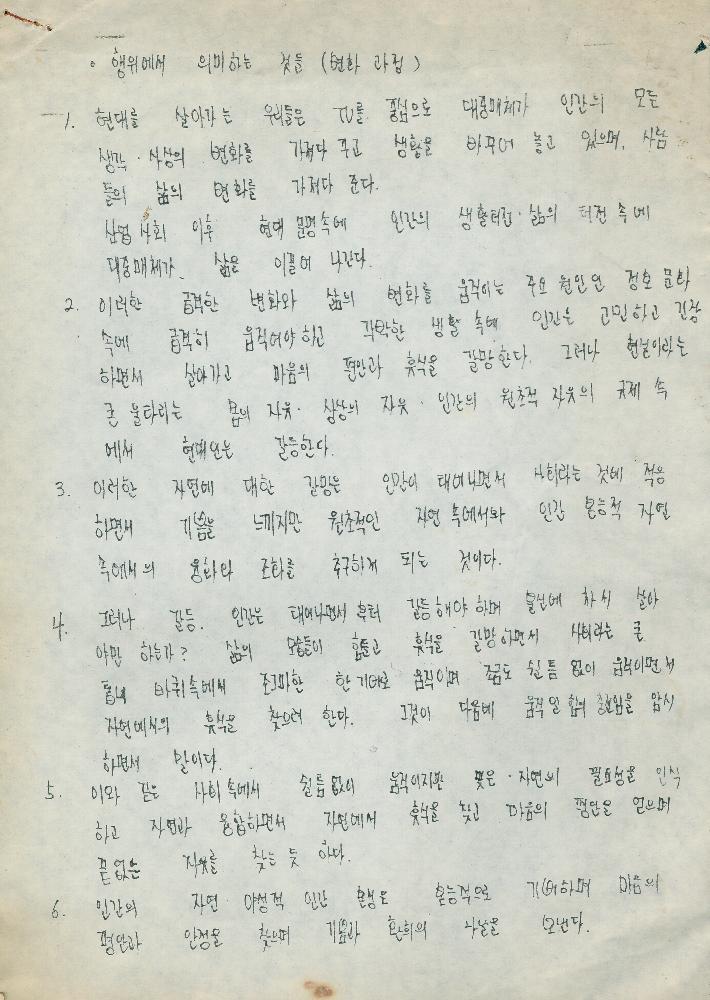 · 행위에서 의미하는 것들 (변화 과정)
1. 현대를 살아가는 우리들은 TV를 중심으로 대중매체가 인간의 모든
생각·사상의 변화를 가져다 주고 생활을 바꾸어 놓고 있으며, 사람
들의 삶의 변화를 가져다 준다.
산업사회 이후 현대 문명속에 인간의 생활터전·삶의 터전 속에
대중매체가 삶을 이끌어 나간다.
2. 이러한 급격한 변화와 삶의 변화를 움직이는 주요 원인인 정호 문화
속에 급격히 움직여야 하고 각박한 생활 속에 인간은 고민하고 긴장
하면서 살아가고 마음의 평안과 휴식을 갈망한다. 그러나 현실이라는
큰 울타리는 몸의 자유·상상의 자유·인간의 원초적 자유의 규제 속
에서 현대인은 갈등한다.
3. 이러한 자연에 대한 갈망은 인간이 태어나면서 사회라는 것에 적응
하면서 기쁨을 느끼지만 원초적인 자연 속에서와 인간 본능적 자연
속에서의 융화와 조화를 추구하게 되는 것이다.
4. 그러나 갈등. 인간은 태어나면서부터 갈등해야 하며 문명에 차서 살아
야만 하는가? 삶의 모습들이 힘들고 휴식을 갈망하면서 사회라는 큰
톱니 바퀴속에서 조그마한 한 기어로 움직이며 조금도 쉴 틈 없이 움직이면서
자연에서의 휴식을 찾으려 한다. 그것이 다음에 움직일 힘의 충전임을 암시
하면서 말이다.
5. 이와 같은 사회속에서 쉴틈없이 움직이지만 맞은·자연의 필요성을 인식
하고 자연과 융합하면서 자연에서 휴식을 찾고 마음의 평안을 얻으며
끝없는 자유를 찾는 듯 하다.
6. 인간의 자연·야성적 인간 본성은 본능적으로 기뻐하며 마음의
평안과 안정을 찾으며 기쁨과 환희의 나날을 보낸다.